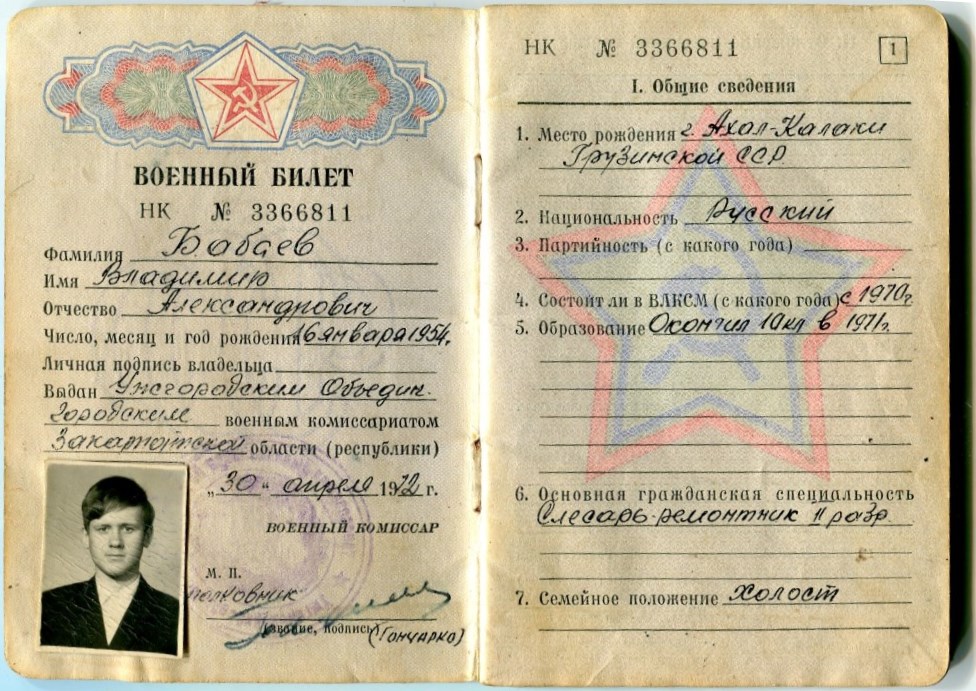 ВОЕННЫЙ БИЛЕТ
НК № 3366811
Фамилия Бабаев
Имя Владимир
Отчество Александрович
Число, месяц и год рождения 16 января 1954.
Личная подпись владельца
Выдан Ужгородским Объедин.
Городским военным комиссариатом
Закарпатской области (республики)
„30“ апреля 1972 г.
ВОЕННЫЙ КОМИССАР
М. П.
полковник
(звание, подпись) (Гончарко)
НК № 3366811 1
I. Общие сведения
1. Место рождения г. Ахал-Калаки
Грузинской ССР
2. Национальность Русский
3. Партийность (с какого года)
4. Состоит ли в ВЛКСМ (с какого года) с 1970г
5. Образование Окончил 10 кл в 1971г.
6. Основная гражданская специальность
Слесарь-ремонтник II разр.
7. Семейное положение Холост